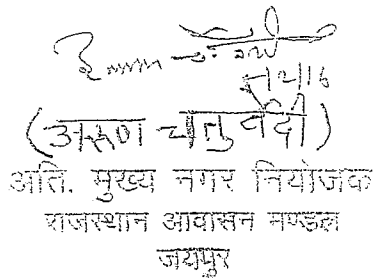 (अरूण चतुर्वेदी)
अति. मुख्य नगर नियोजक
राजस्थान आवासन मण्डल
जयपुर